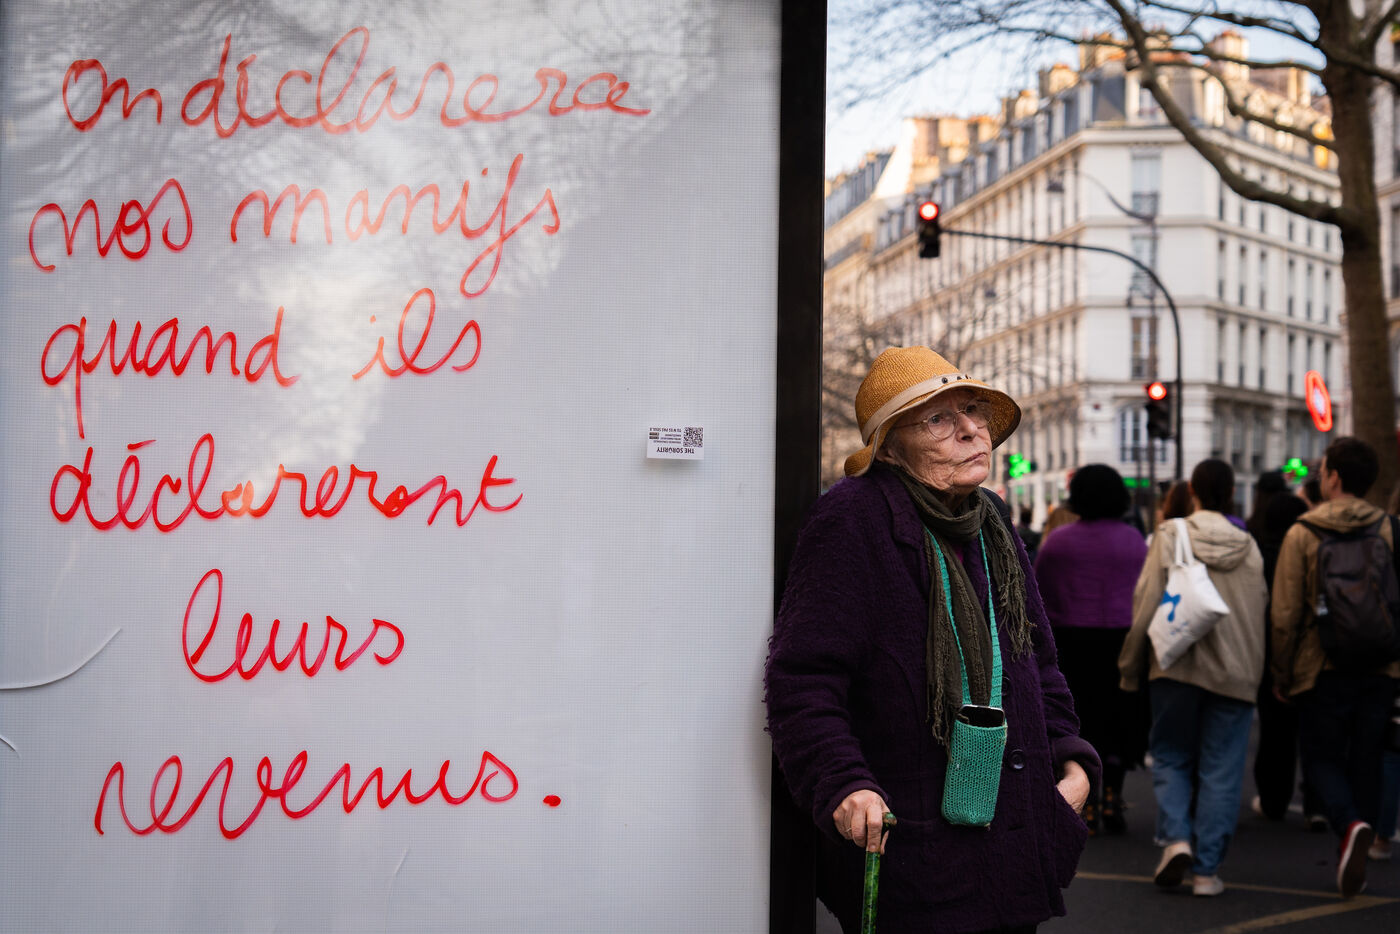 On déclarera
nos manifs
quand ils
déclareront
leurs
revenus.
THE SORORITY
TU N'ES PAS SEUL.E